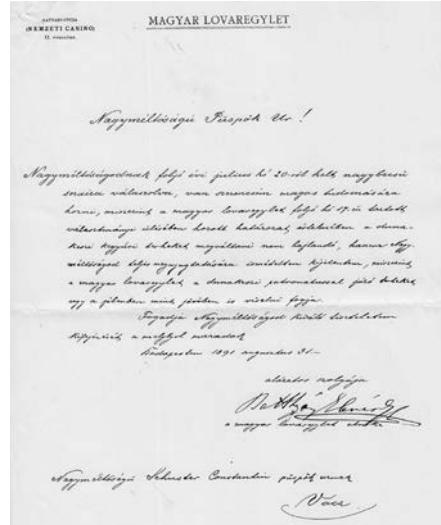 HATVANI-UTCZA
(NEMZETI CASINO)
II. emeleten.
MAGYAR LOVAREGYLET
Nagyméltóságú Püspök Ur!
Nagyméltóságodnak folyó évi julius hó 20-ról kelt nagybecsü
soraira válaszolva, van szerencsém magas tudomására
hozni, miszerint a magyar lovaregylet folyó hó 17-én tartott
választmányi ülésében hozott határozat értelmében a duna-
keszi kegyúri terheket megváltani nem hajlandó, hanem Nagy-
méltóságod teljes megnyugtatására ismételten kijelentem, miszerint
a magyar lovaregylet a dunakeszi patronatussal járó terheket
ugy a jelenben mint jövőben is viselni fogja.
Fogadja Nagyméltóságod kiváló tiszteletem
kifejezését, a melylyel maradok
Budapesten 1891 augusztus 31-
alázatos szolgája
Batthyány Elemér
a magyar lovaregylet elnöke
Nagyméltóságú Schuster Constantin püspök urnak
Vácz